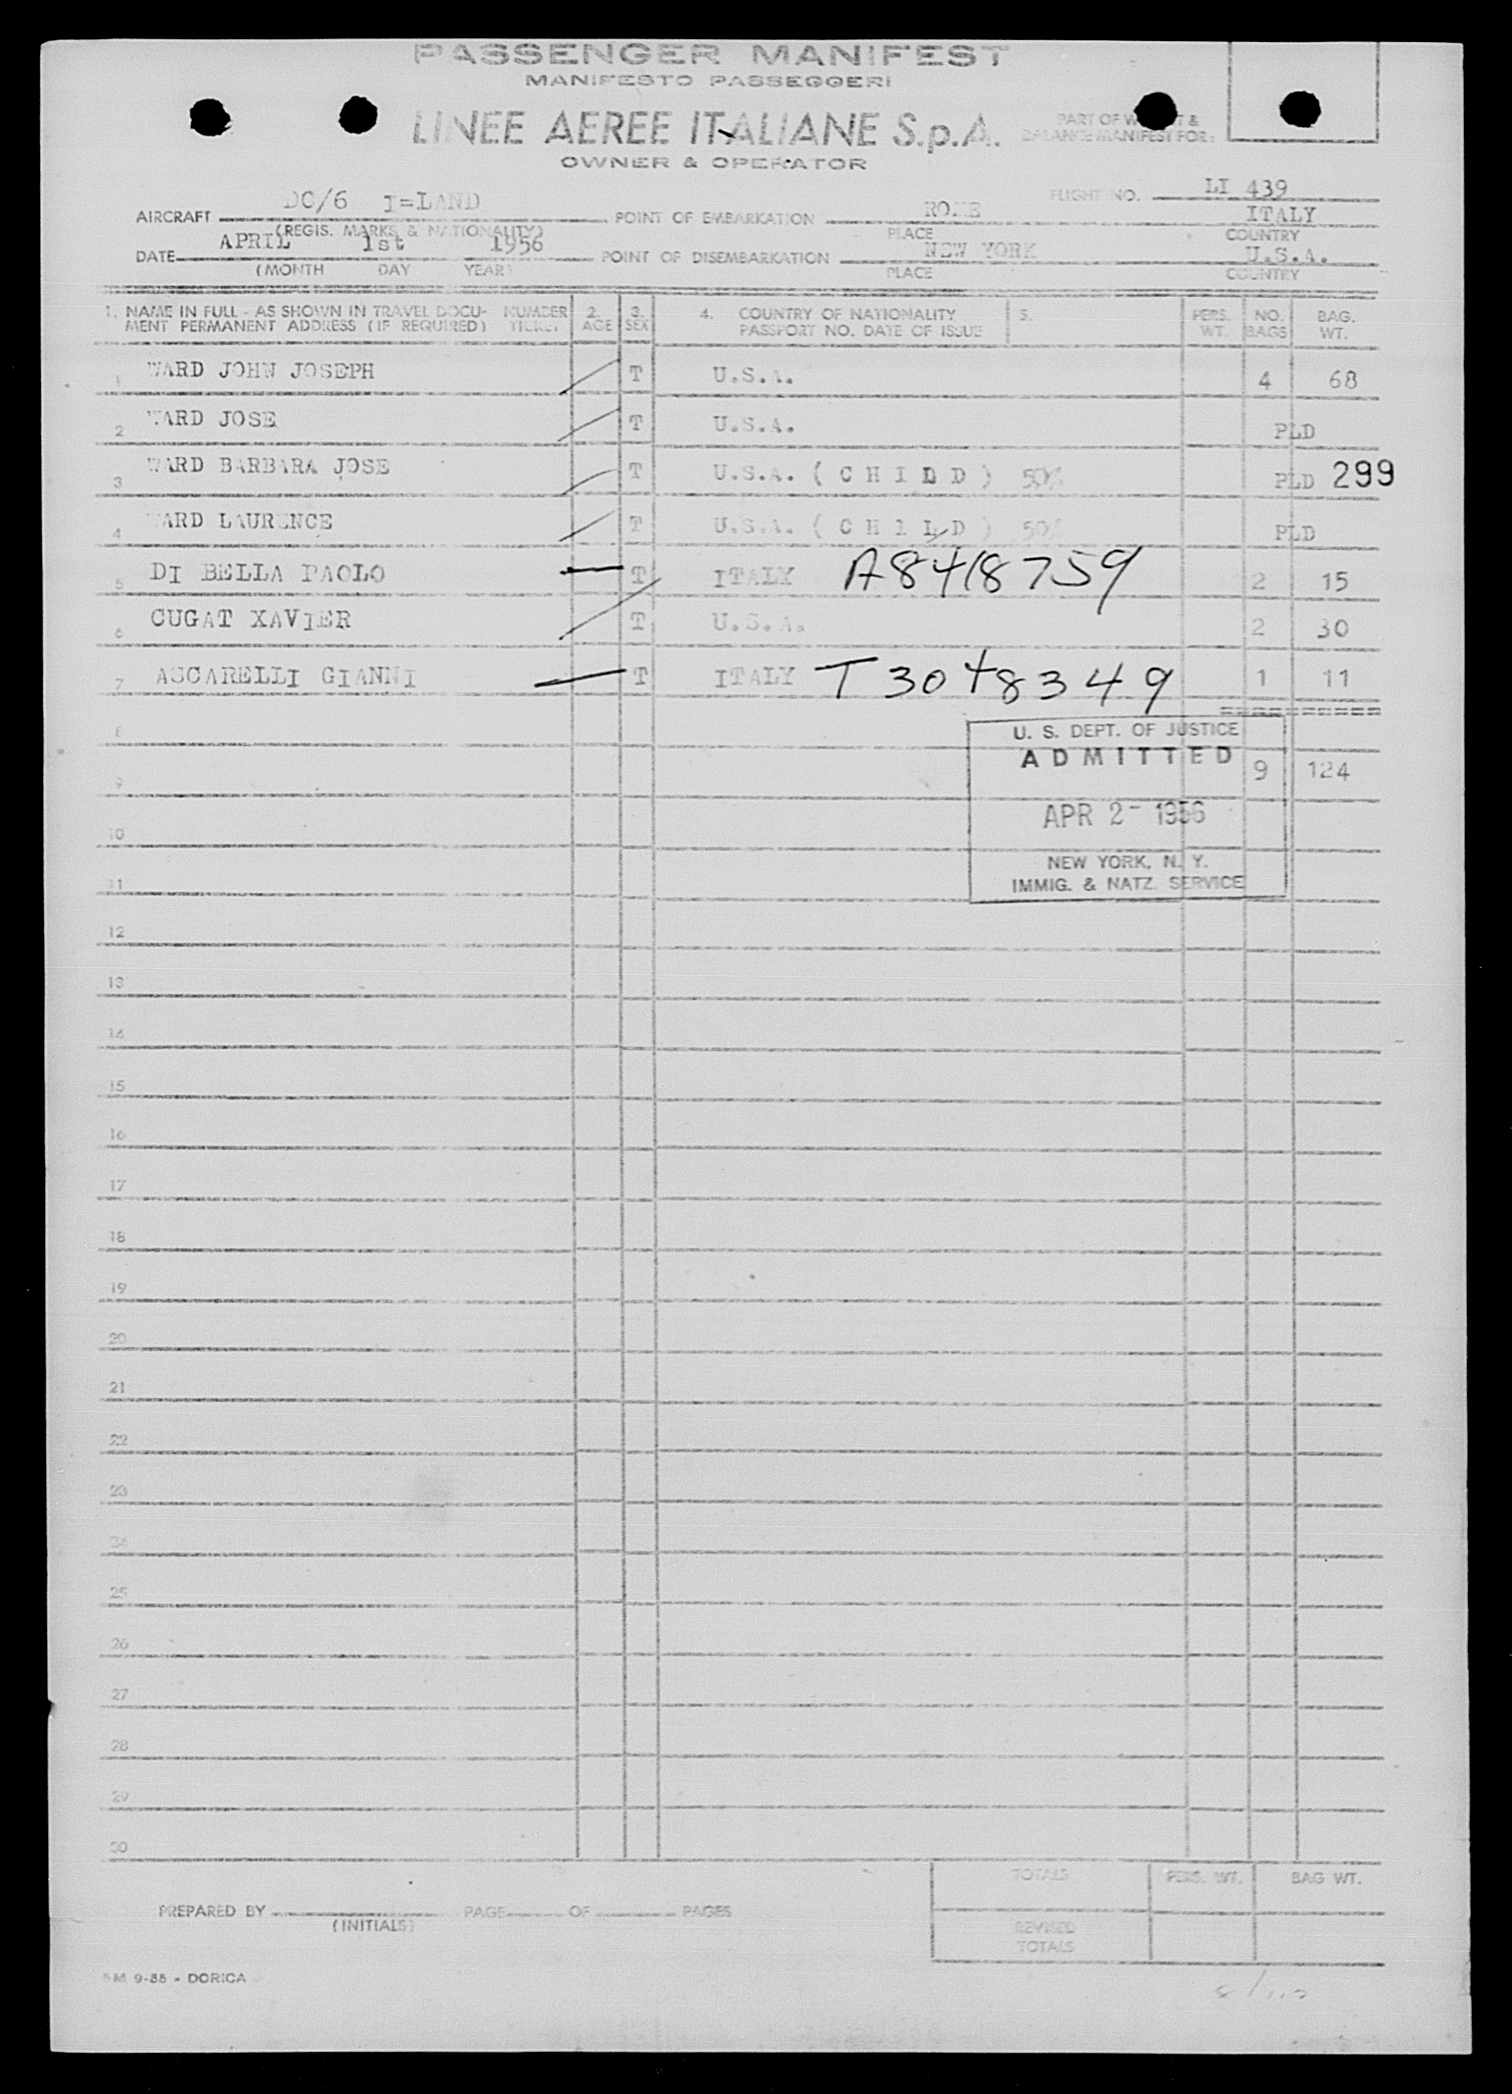 PASSENGER MANIFEST
MANIFESTO PASSEGGERI
LINEE AEREE ITALIANE S.p.A.
OWNER & OPERATOR
PART OF W T &
BALANCE MANIFEST FOR:
FLIGHT NO. LI 439
AIRCRAFT DC/6 I=LAND POINT OF EMBARKATION ROME ITALY
(REGIS. MARKS & NATIONALITY) PLACE COUNTRY
DATE APRIL 1st 1956 POINT OF DISEMBARKATION NEW YORK U.S.A.
(MONTH DAY YEAR) PLACE COUNTRY
1. NAME IN FULL - AS SHOWN IN TRAVEL DOCU- NUMBER 2. 3. 4. COUNTRY OF NATIONALITY 5. PERS. NO. BAG.
MENT PERMANENT ADDRESS (IF REQUIRED) TICKET AGE SEX PASSPORT NO. DATE OF ISSUE WT. BAGS WT.
1 WARD JOHN JOSEPH T U.S.A. 4 68
2 WARD JOSE T U.S.A. PLD
3 WARD BARBARA JOSE T U.S.A. ( C H I L D ) 50% PLD 299
4 WARD LAURENCE T U.S.A. ( C H I L D ) 50% PLD
5 DI BELLA PAOLO T ITALY A8418759 2 15
6 CUGAT XAVIER T U.S.A. 2 30
7 ASCARELLI GIANNI T ITALY T 3048349 1 11
==========
8
U. S. DEPT. OF JUSTICE
ADMITTED
9 9 124
APR 2- 1956
10
NEW YORK, N. Y.
IMMIG. & NATZ. SERVICE
11
12
13
14
15
16
17
18
19
20
21
22
23
24
25
26
27
28
29
30
TOTALS PERS. WT. BAG WT.
PREPARED BY PAGE OF PAGES
(INITIALS)
REVISED
TOTALS
5M 9-55 - DORICA